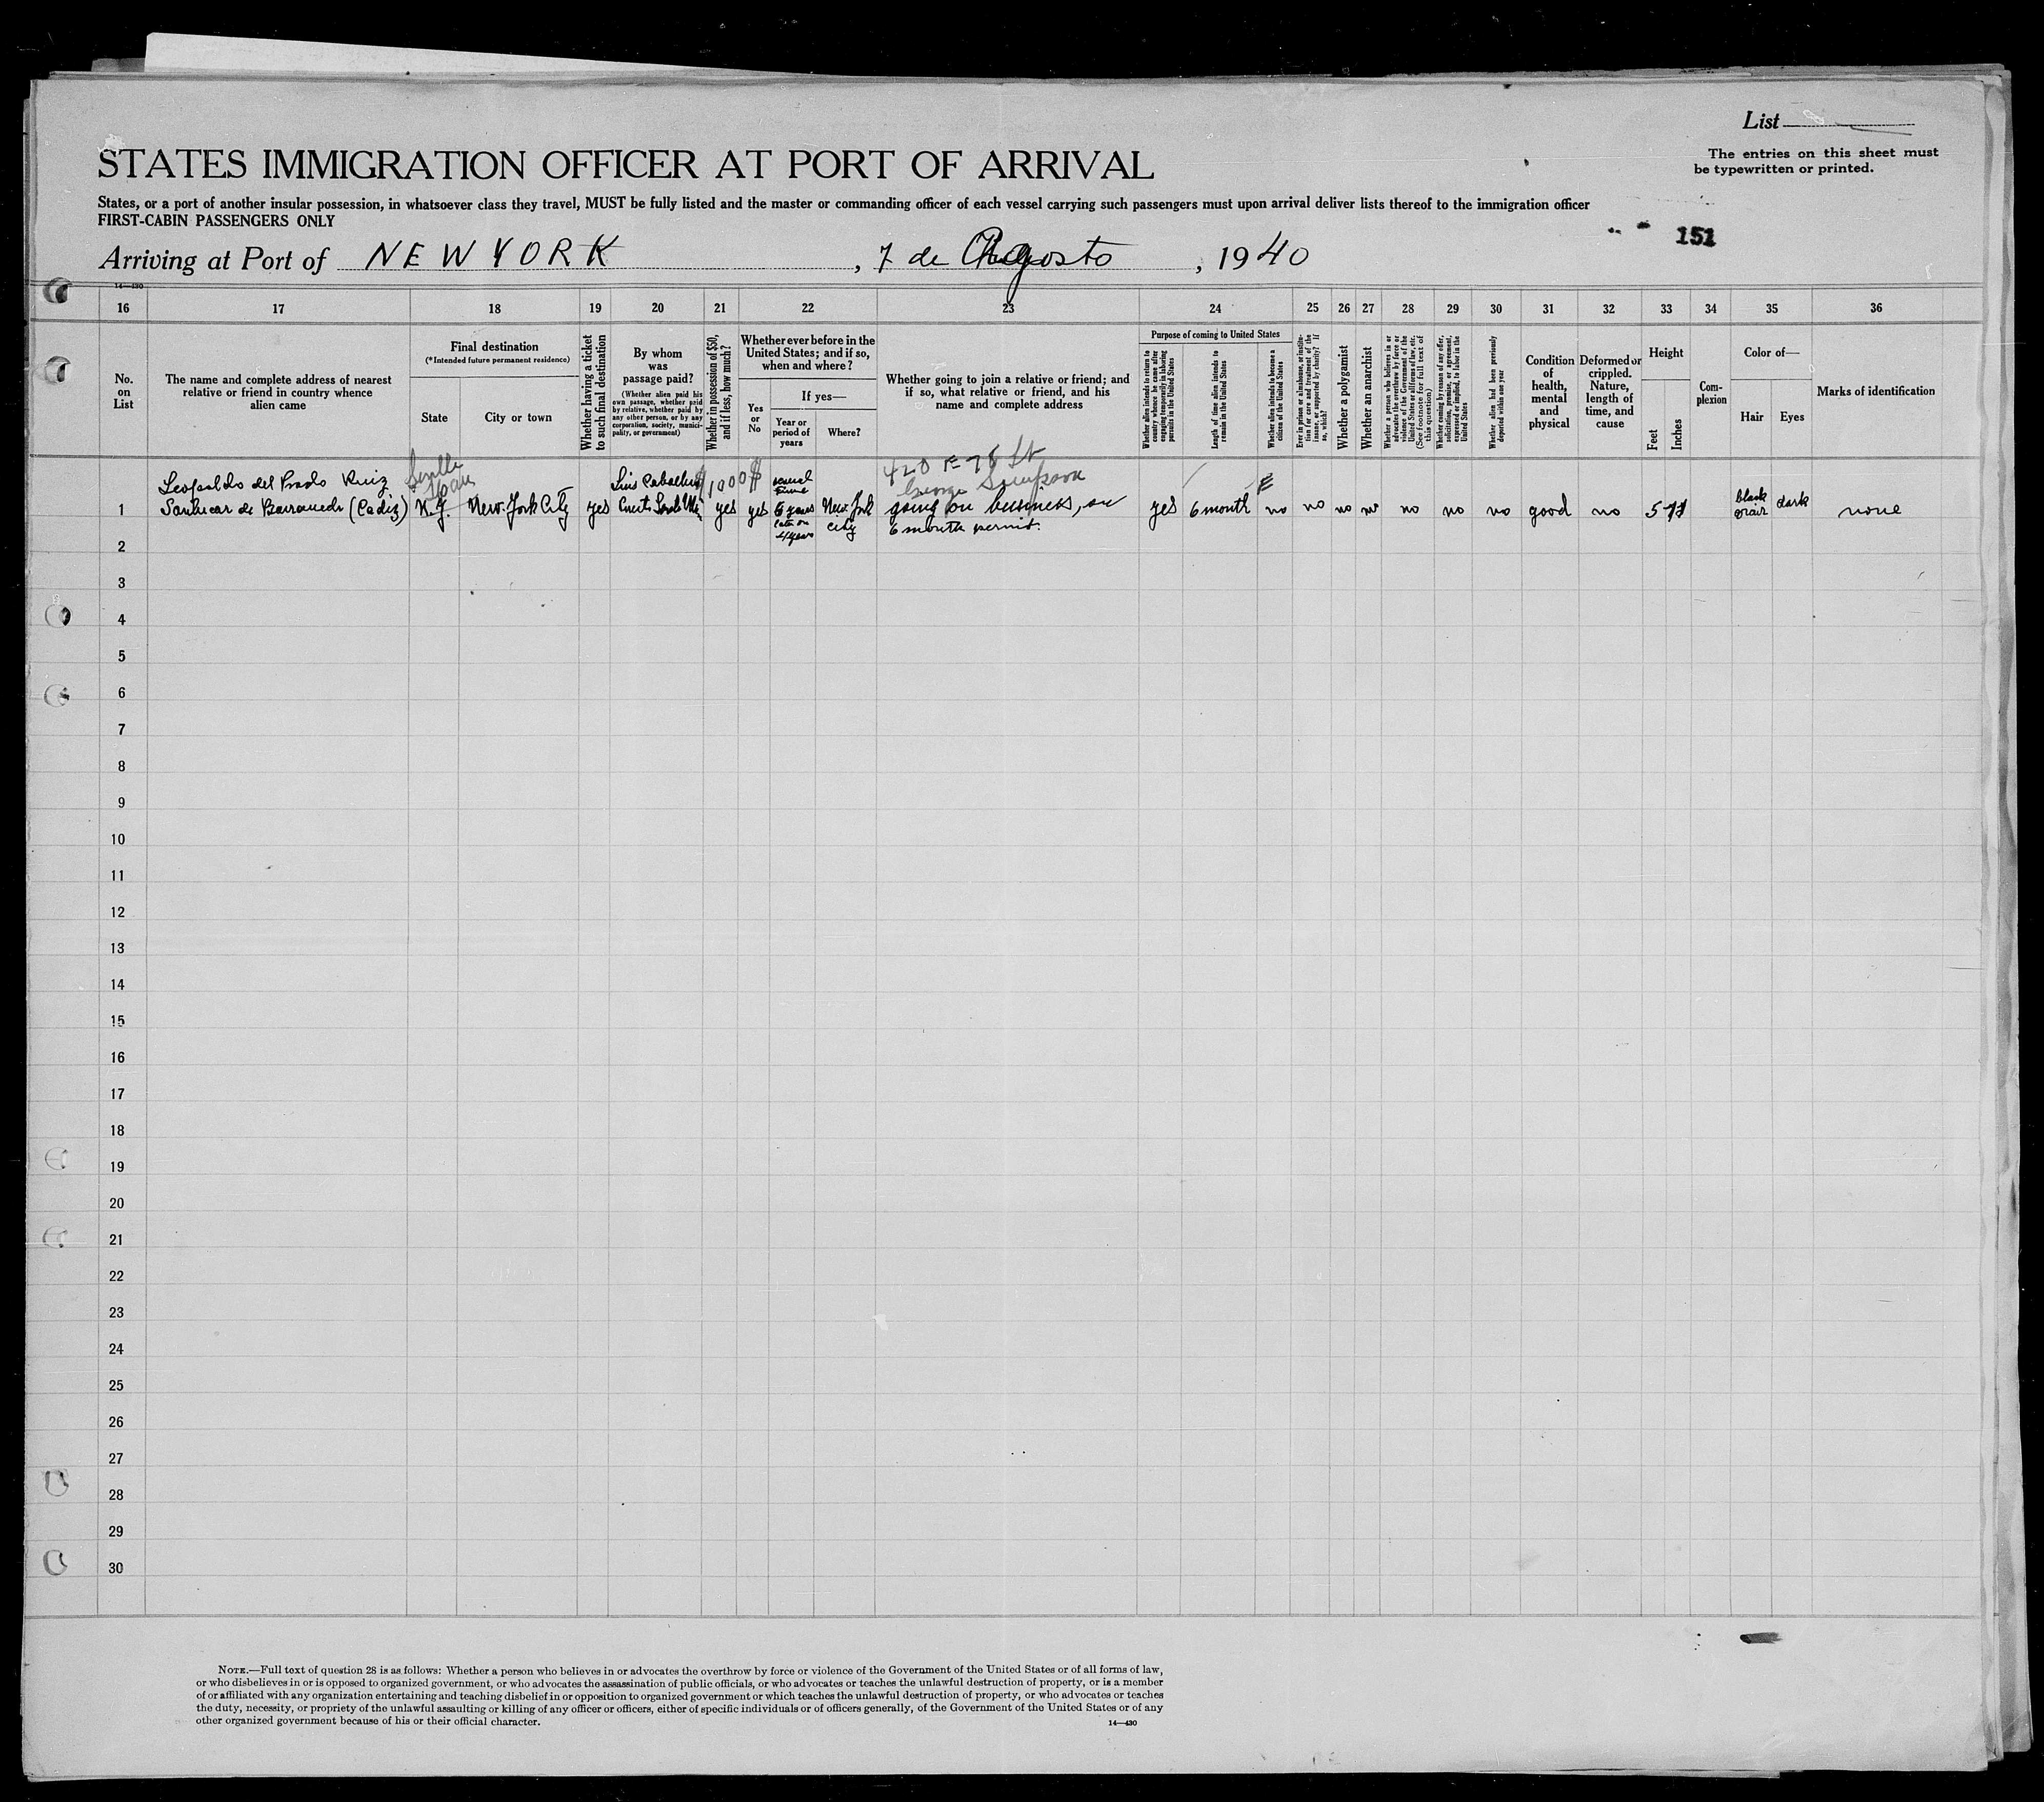 List
The entries on this sheet must
be typewritten or printed.
STATES IMMIGRATION OFFICER AT PORT OF ARRIVAL
States, or a port of another insular possession, in whatsoever class they travel, MUST be fully listed and the master or commanding officer of each vessel carrying such passengers must upon arrival deliver lists thereof to the immigration officer
FIRST-CABIN PASSENGERS ONLY
151
Arriving at Port of NEW YORK, 7 de Agosto, 1940
14—430
16 17 18 19 20 21 22 23 24 25 26 27 28 29 30 31 32 33 34 35 36
No. on List
The name and complete address of nearest
relative or friend in country whence
alien came
Final destination
(*Intended future permanent residence)
State
City or town
Whether having a ticket
to such final destination
By whom
was
passage paid?
(Whether alien paid his
own passage, whether paid
by relative, whether paid by
any other person, or by any
corporation, society, munici-
pality, or government)
Whether in possession of $50,
and if less, how much?
Whether ever before in the
United States; and if so,
when and where?
Yes
or
No
If yes—
Year or
period of
years
Where?
Whether going to join a relative or friend; and
if so, what relative or friend, and his
name and complete address
Purpose of coming to United States
Whether alien intends to return to
country whence he came after
engaging temporarily in laboring
pursuits in the United States
Length of time alien intends to
remain in the United States
Whether alien intends to become a
citizen of the United States
Ever in prison or almshouse, or institu-
tion for care and treatment of the
insane, or supported by charity? If
so, which?
Whether a polygamist
Whether an anarchist
Whether a person who believes in or
advocates the overthrow by force or
violence of the Government of the
United States or all forms of law, etc.
(See footnote for full text of
this question)
Whether coming by reason of any offer,
solicitation, promise, or agreement,
expressed or implied, to labor in the
United States
Whether alien had been previously
deported within one year
Condition
of
health,
mental
and
physical
Deformed or
crippled.
Nature,
length of
time, and
cause
Height
Feet
Inches
Com-
plexion
Color of—
Hair
Eyes
Marks of identification
420 E 78 St
George Simpson
Leopoldo del Prado Ruiz
Luis Caballero
$1000$
1 Sanlucar de Barrameda (Cadiz) N.Y. New-York City yes yes yes 5 years New York going on business, on yes 6 month no no no no no no no good no 5 11 black dark none
later on
4 years
city
6 month permit.
hair
2
3
4
5
6
7
8
9
10
11
12
13
14
15
16
17
18
19
20
21
22
23
24
25
26
27
28
29
30
NOTE.—Full text of question 28 is as follows: Whether a person who believes in or advocates the overthrow by force or violence of the Government of the United States or of all forms of law,
or who disbelieves in or is opposed to organized government, or who advocates the assassination of public officials, or who advocates or teaches the unlawful destruction of property, or is a member
of or affiliated with any organization entertaining and teaching disbelief in or opposition to organized government or which teaches the unlawful destruction of property, or who advocates or teaches
the duty, necessity, or propriety of the unlawful assaulting or killing of any officer or officers, either of specific individuals or of officers generally, of the Government of the United States or of any
other organized government because of his or their official character.
14—430